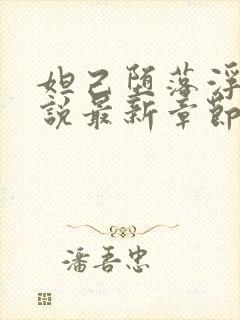 妲己堕落浮
說最新章節
潘吾忠